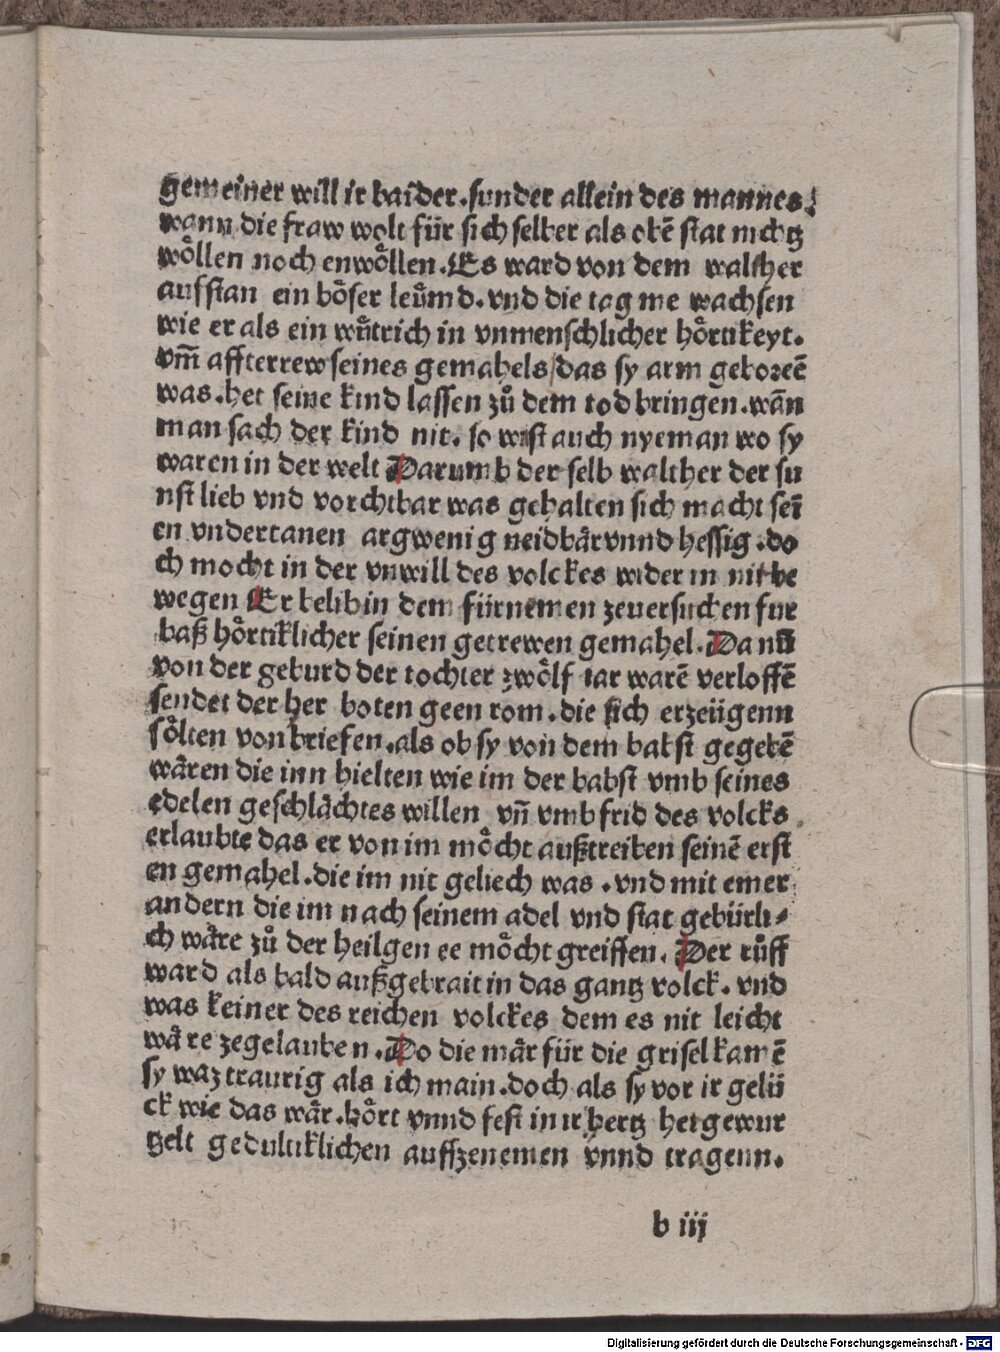 gemeiner will ir baider. sunder allein des mannes.
wann die fraw wolt für sich selber als obē stat nichtz
wöllen noch enwöllen. Es ward von dem walther
aufstan ein böser leümd. vnd die tag me wachsen
wie er als ein wütrich in vnmenschlicher hörtikeyt.
vm̄ affterrew seines gemahels/das sy arm geborēē
was. het seine kind lassen zů dem tod bringen. wān
man sach der kind nit. so wist auch nyeman wo sy
waren in der welt Darumb der selb walther der su
nst lieb vnd vorchtbar was gehalten sich macht seī
en vndertanen argwenig neidbår vnnd hessig. do
ch mocht in der vnwill des volckes wider in nit be
wegen Er belib in dem fürnemen zeuersuchen fur
baß hörtiklicher seinen getrewen gemahel. Da nū
von der geburd der tochter zwölf iar warē verloffē
sendet der her boten geen rom. die sich erzeügenn
sölten von briefen. als ob sy von dem babst gegebē
wåren die inn hielten wie im der babst vmb seines
edelen geschlåchtes willen vn̄ vmb frid des volcks
erlaubte das er von im möcht außtreiben seinē erst
en gemahel. die im nit geliech was. vnd mit einer
andern die im nach seinem adel vnd stat gebürli⸗
ch wåre zů der heilgen ee möcht greiffen. Der růff
ward als bald außgebrait in das gantz volck. vnd
was keiner des reichen volckes dem es nit leicht
wåre zegelauben. Do die mår für die grisel kamē
sy waz traurig als ich main. doch als sy vor ir gelü
ck wie das wår. hört vnnd fest in ir hertz het gewur
tzelt gedultiklichen auffzenemen vnnd tragenn.
b iij
Digitalisierung gefördert durch die Deutsche Forschungsgemeinschaft - DFG